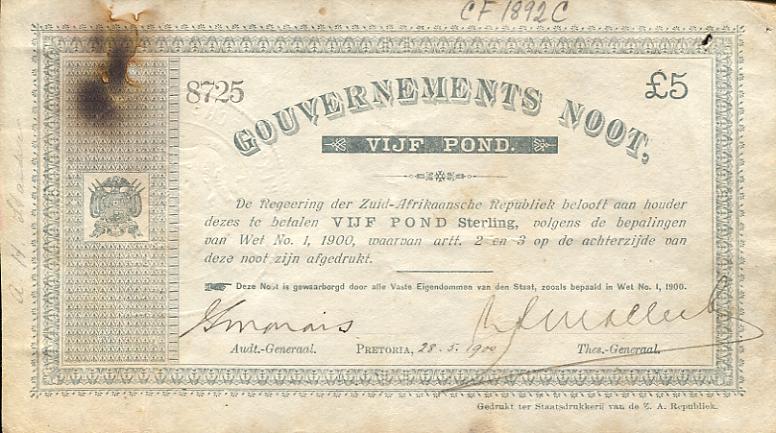 CF 1892 C
8725
£5
GOUVERNEMENTS NOOT,
VIJF POND.
De Regeering der Zuid-Afrikaansche Republiek belooft aan houder
dezes te betalen VIJF POND Sterling, volgens de bepalingen
van Wet No. 1, 1900, waarvan artt. 2 en 3 op de achterzijde van
deze noot zijn afgedrukt.
Deze Noot is gewaarborgd door alle Vaste Eigendommen van den Staat, zooals bepaald in Wet No. 1, 1900.
Audt.-Generaal. PRETORIA, 28.5.1900 Thes.-Generaal.
Gedrukt ter Staatsdrukkerij van de Z. A. Republiek.